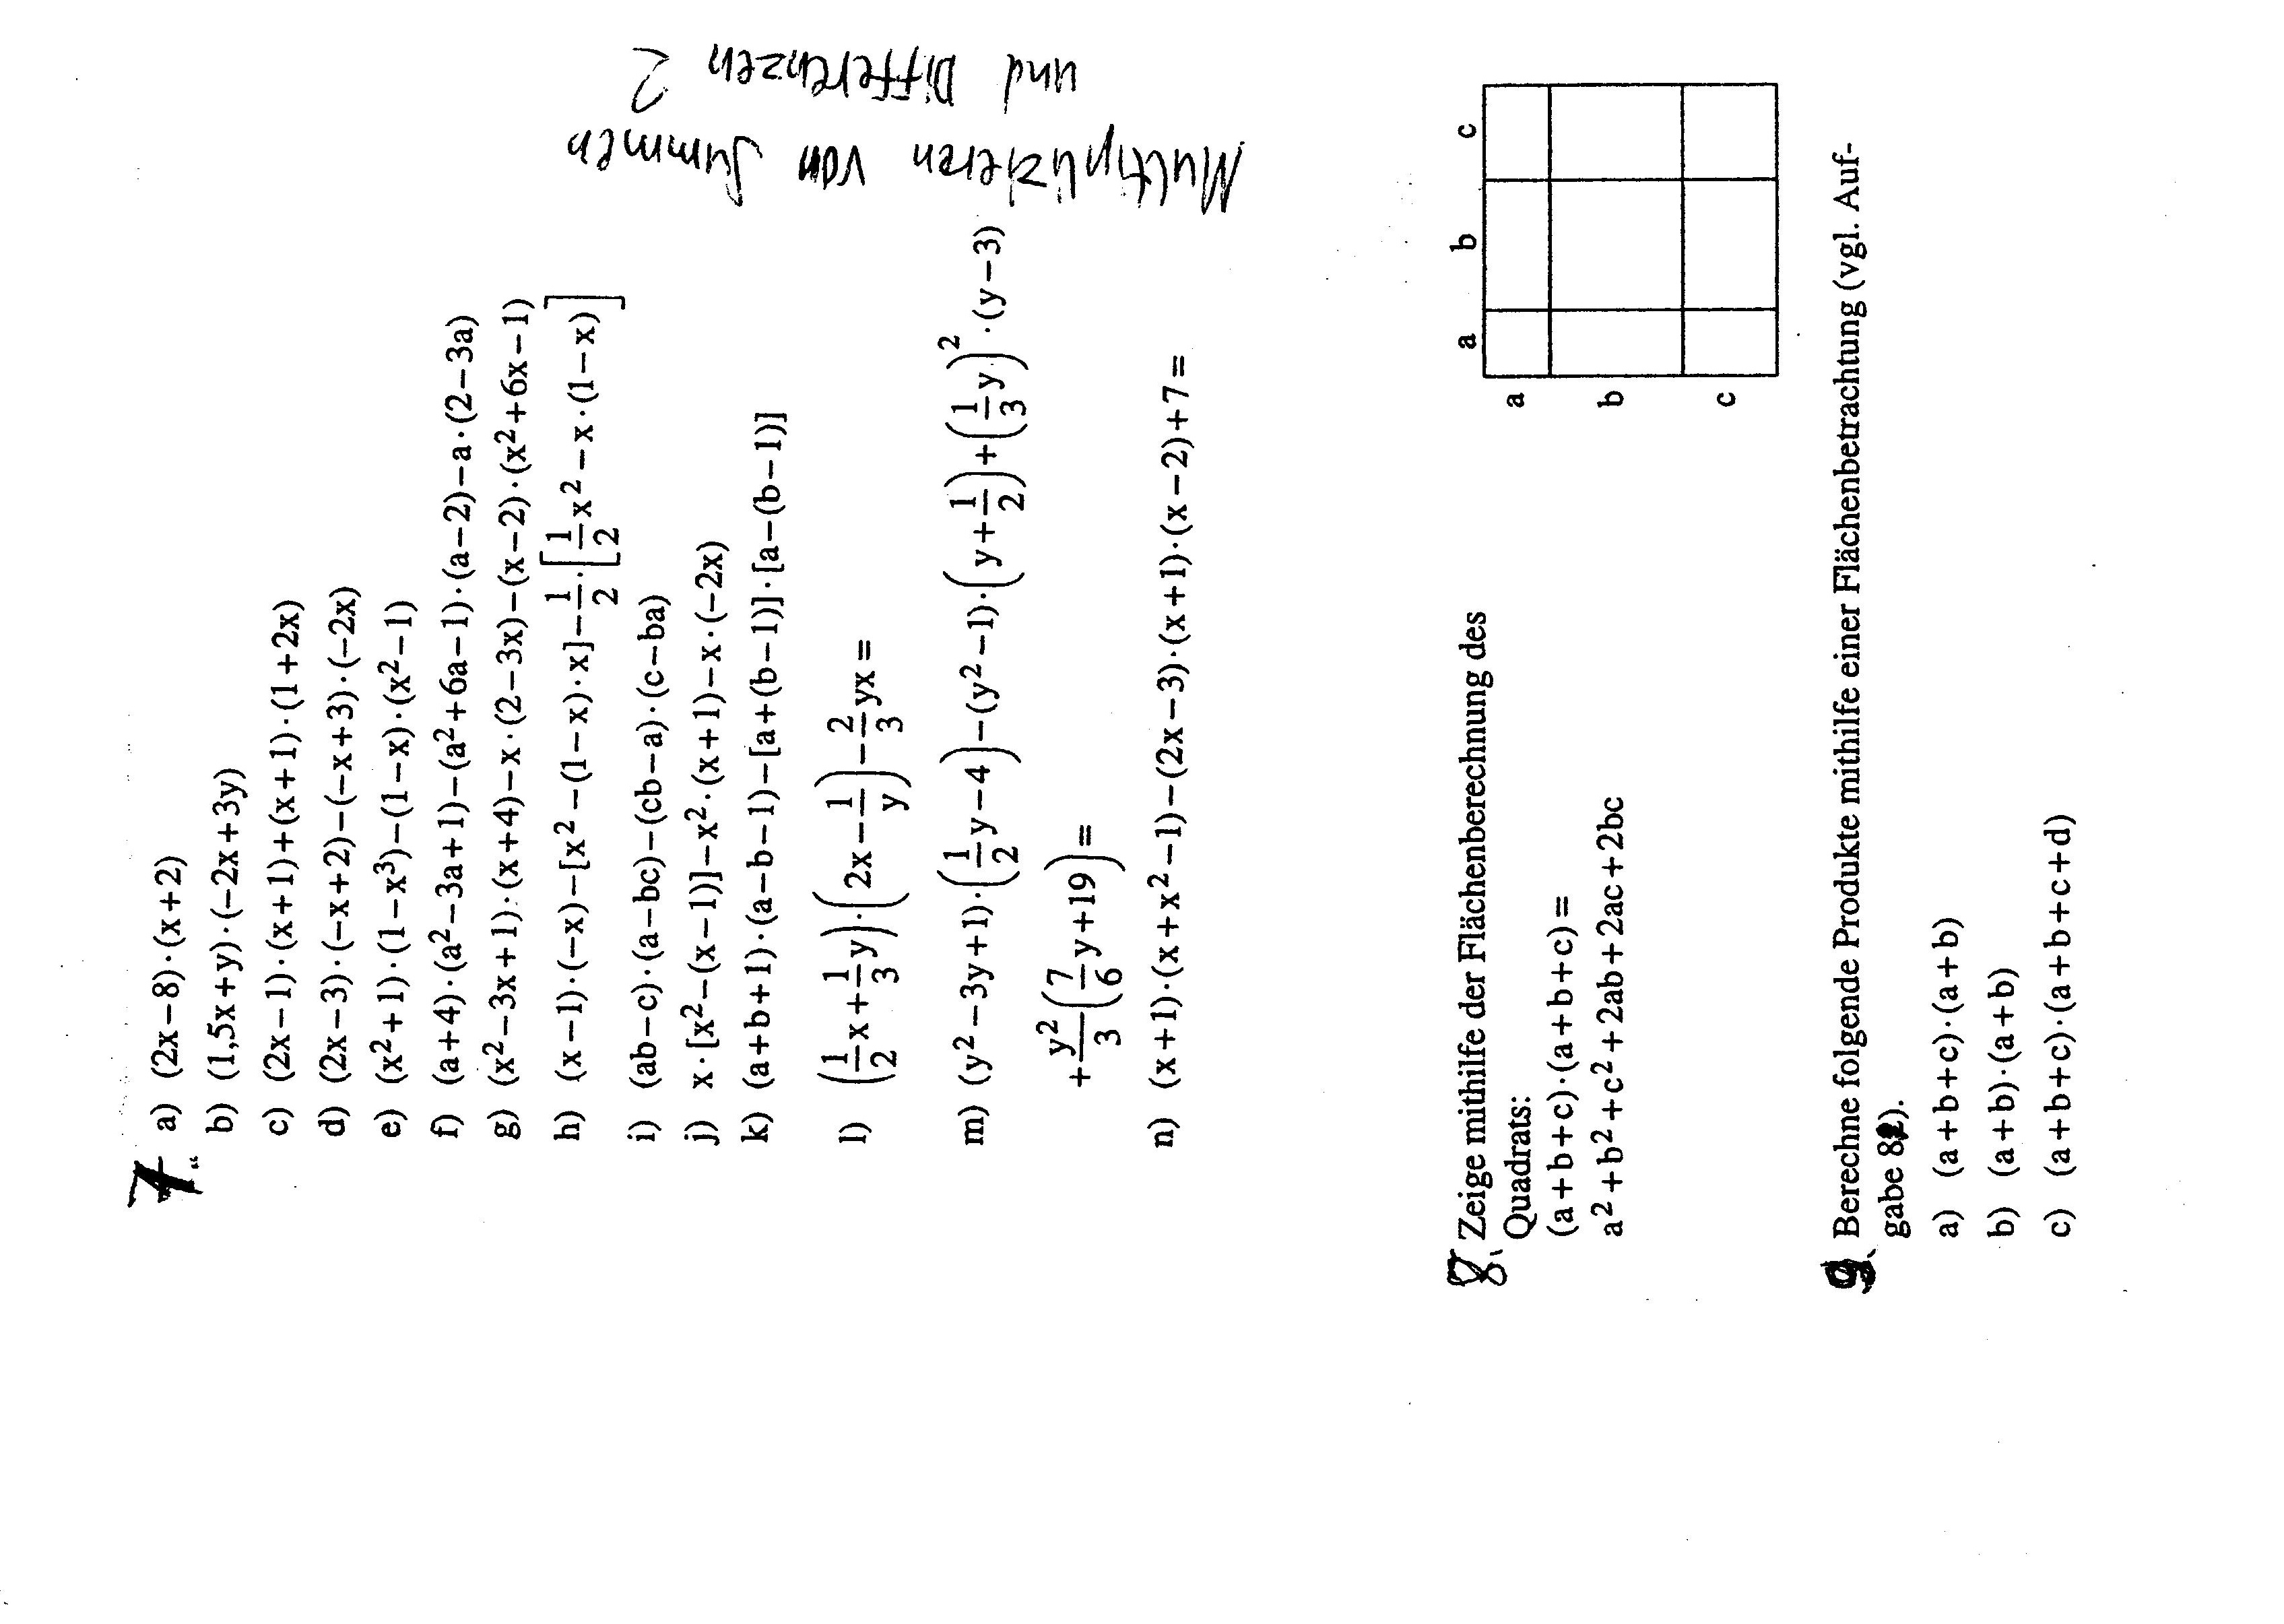 Multiplizieren von Summen
und Differenzen 2
7.
a) (2x−8)·(x+2)
b) (1,5x+y)·(−2x+3y)
c) (2x−1)·(x+1)+(x+1)·(1+2x)
d) (2x−3)·(−x+2)−(−x+3)·(−2x)
e) (x²+1)·(1−x³)−(1−x)·(x²−1)
f) (a+4)·(a²−3a+1)−(a²+6a−1)·(a−2)−a·(2−3a)
g) (x²−3x+1)·(x+4)−x·(2−3x)−(x−2)·(x²+6x−1)
h) (x−1)·(−x)−[x²−(1−x)·x]−1/2·[1/2x²−x·(1−x)]
i) (ab−c)·(a−bc)−(cb−a)·(c−ba)
j) x·[x²−(x−1)]−x²·(x+1)−x·(−2x)
k) (a+b+1)·(a−b−1)−[a+(b−1)]·[a−(b−1)]
l) (1/2x+1/3y)·(2x−1/y)−2/3yx=
m) (y²−3y+1)·(1/2y−4)−(y²−1)·(y+1/2)+(1/3y)²·(y−3)
+y²/3(7/6y+19)=
n) (x+1)·(x+x²−1)−(2x−3)·(x+1)·(x−2)+7=
8. Zeige mithilfe der Flächenberechnung des
Quadrats:
(a+b+c)·(a+b+c)=
a²+b²+c²+2ab+2ac+2bc
a b c
a
b
c
9. Berechne folgende Produkte mithilfe einer Flächenbetrachtung (vgl. Auf-
gabe 8).
a) (a+b+c)·(a+b)
b) (a+b)·(a+b)
c) (a+b+c)·(a+b+c+d)